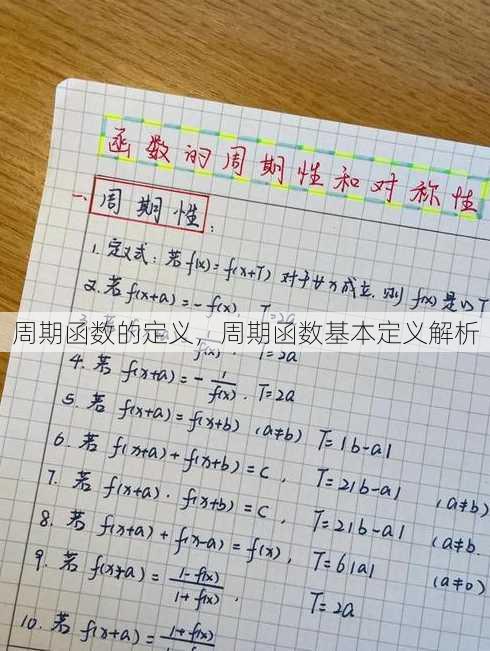 函数的周期性和对称性
一、周期性：
1. 定义式：若f(x)=f(x+T) 对于∀x成立, 则 f(x)是以T
2. 若f(x+a)=-f(x), T=2a
周期函数的定义，周期函数基本定义解析
f(x) T=2a
4. 若 f(x+a)=-1/f(x). T=2a
5. 若 f(x+a)=f(x+b) (a≠b) T=|b-a|
6. 若 f(x+a)+f(x+b)=c, T=2|b-a| (a≠b)
7. 若 f(x+a)·f(x+b)=c, T=2|b-a| (a≠b.
8. 若 f(x+a)+f(x-a)=f(x), T=6|a| (a≠0)
9. 若 f(x+a)=1-f(x)/1+f(x), T=2a
10. 若 f(x+a)=1+f(x)